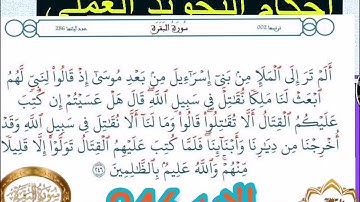 احكام التجويد العملي
ترتيبها 002
سورة البقرة
عدد آياتها 286
أَلَمْ تَرَ إِلَى ٱلْمَلَإِ مِنۢ بَنِىٓ إِسْرَٰٓءِيلَ مِنۢ بَعْدِ مُوسَىٰٓ إِذْ قَالُوا۟ لِنَبِىٍّ لَّهُمُ
ٱبْعَثْ لَنَا مَلِكًا نُّقَٰتِلْ فِى سَبِيلِ ٱللَّهِ ۖ قَالَ هَلْ عَسَيْتُمْ إِن كُتِبَ
عَلَيْكُمُ ٱلْقِتَالُ أَلَّا تُقَٰتِلُوا۟ ۖ قَالُوا۟ وَمَا لَنَآ أَلَّا نُقَٰتِلَ فِى سَبِيلِ ٱللَّهِ وَقَدْ
أُخْرِجْنَا مِن دِيَٰرِنَا وَأَبْنَآئِنَا ۖ فَلَمَّا كُتِبَ عَلَيْهِمُ ٱلْقِتَالُ تَوَلَّوْا۟ إِلَّا قَلِيلًا
مِّنْهُمْ ۗ وَٱللَّهُ عَلِيمٌۢ بِٱلظَّٰلِمِينَ ٢٤٦